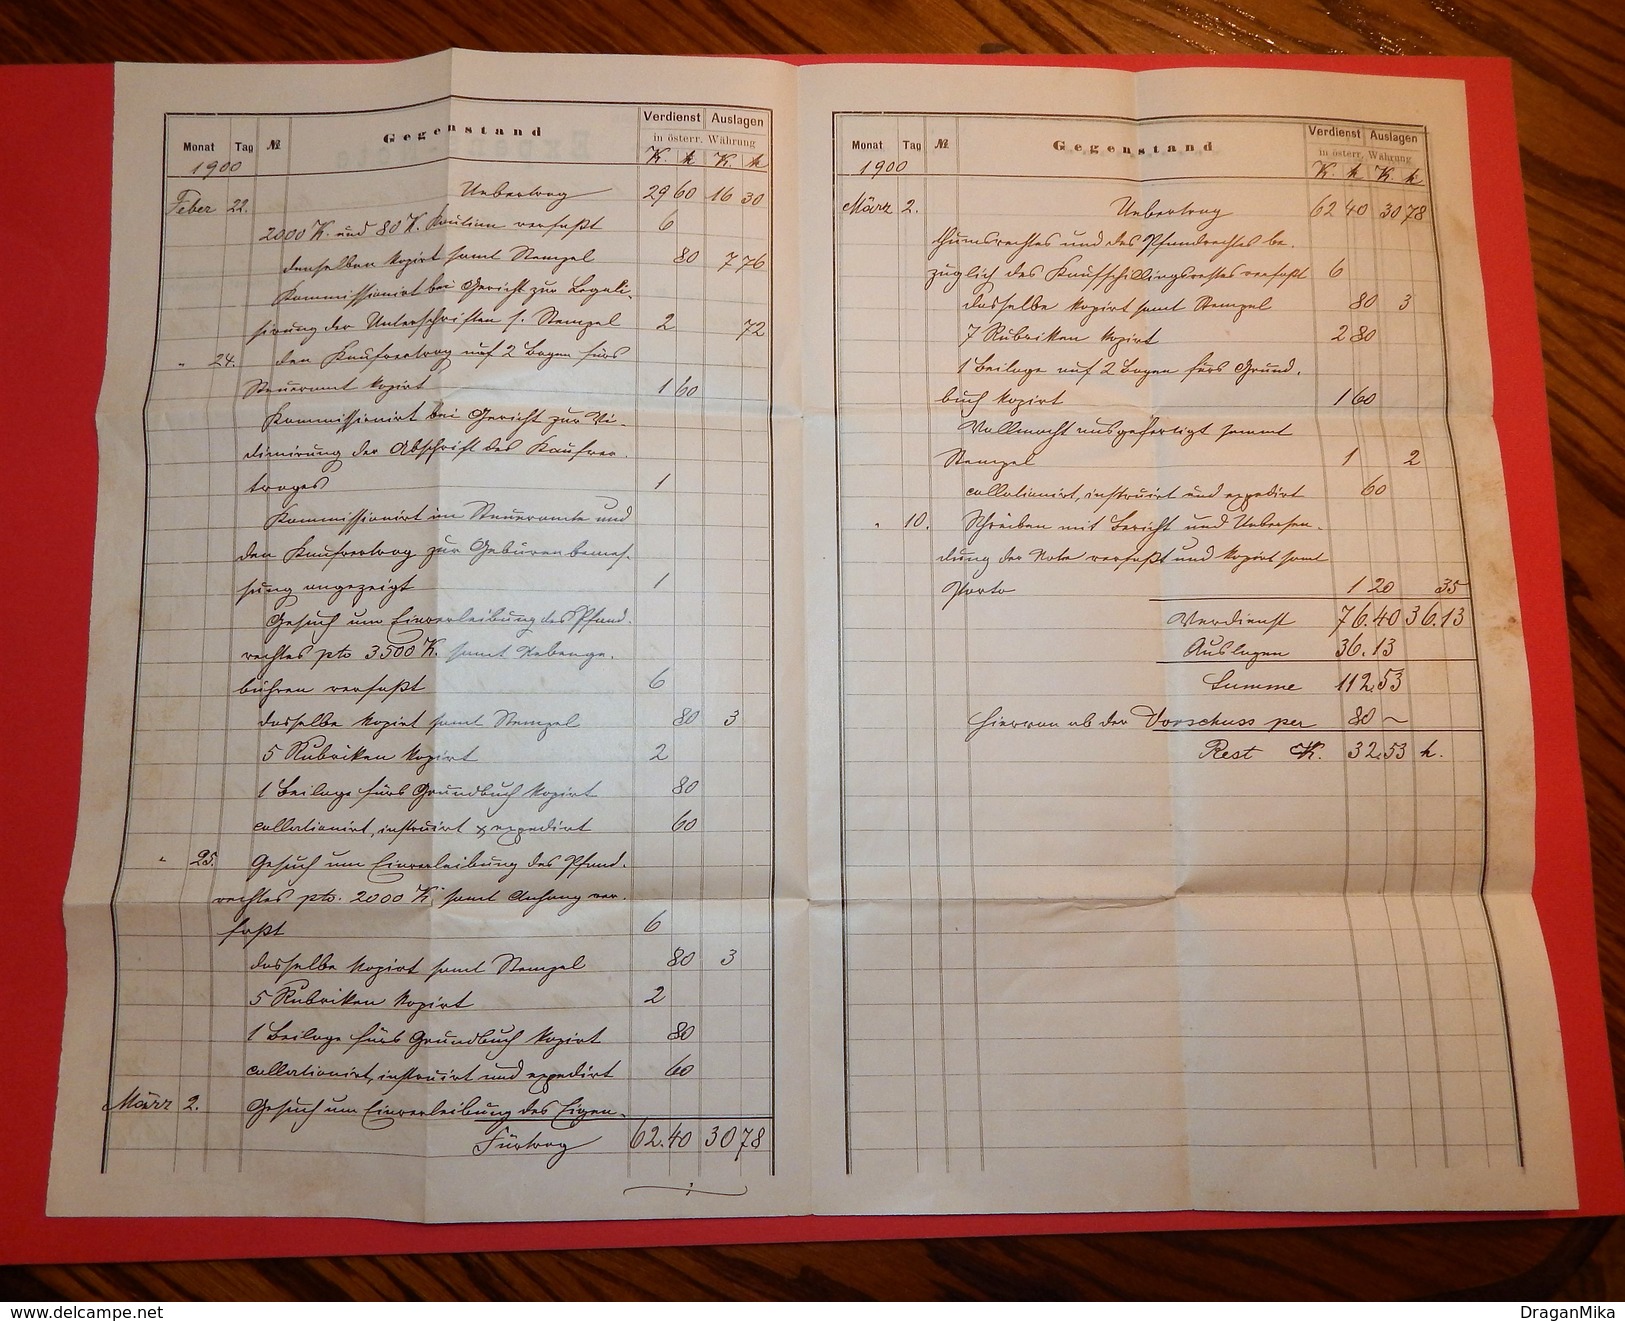 Monat Tag № Gegenstand Verdienst Auslagen
in österr. Währung
1900 K. h K. h
Feber 22. Uebertrag 29 60 16 30
2000 K. und 80 K. verfaßt 6
denselben kopirt samt Stempel 80 7 76
Kommissionirt bei Gericht zur Legali-
sirung der Unterschriften s. Stempel 2 72
" 24. den Kaufvertrag auf 2 Bogen fürs
Steueramt kopirt 1 60
Kommissionirt bei Gericht zur Vi-
dimirung der Abschrift des Kaufver-
trages 1
Kommissionirt im Steueramte und
den Kaufvertrag zur Gebürenbemes-
sung angezeigt 1
Gesuch um Einverleibung des Pfand-
rechtes pto 3500 K. samt Nebenge-
bühren verfaßt 6
dasselbe kopirt samt Stempel 80 3
5 Rubriken kopirt 2
1 Beilage fürs Grundbuch kopirt 80
collationirt, instruirt & expedirt 60
" 25. Gesuch um Einverleibung des Pfand-
rechtes pto. 2000 K. samt Anhang ver-
faßt 6
dasselbe kopirt samt Stempel 80 3
5 Rubriken kopirt 2
1 Beilage fürs Grundbuch kopirt 80
collationirt, instruirt und expedirt 60
März 2. Gesuch um Einverleibung des Eigen-
Fürtrag 62.40 30 78
Monat Tag № Gegenstand Verdienst Auslagen
in österr. Währung
1900 K. h K. h
März 2. Uebertrag 62 40 30 78
thumsrechtes und des Pfandrechtes be-
züglich des Kaufschillingsrestes verfaßt 6
dasselbe kopirt samt Stempel 80 3
7 Rubriken kopirt 2 80
1 Beilage auf 2 Bogen fürs Grund-
buch kopirt 1 60
Vollmacht ausgefertigt sammt
Stempel 1 2
collationirt, instruirt und expedirt 60
" 10. Schreiben mit Bericht und Uebersen-
dung der Note verfaßt und kopirt samt
Porto 1 20 35
Verdienst 76.40 36.13
Auslagen 36.13
Summe 112.53
hievon ab der Vorschuss per 80 ~
Rest K. 32.53 h.
www.delcampe.net
DraganMika